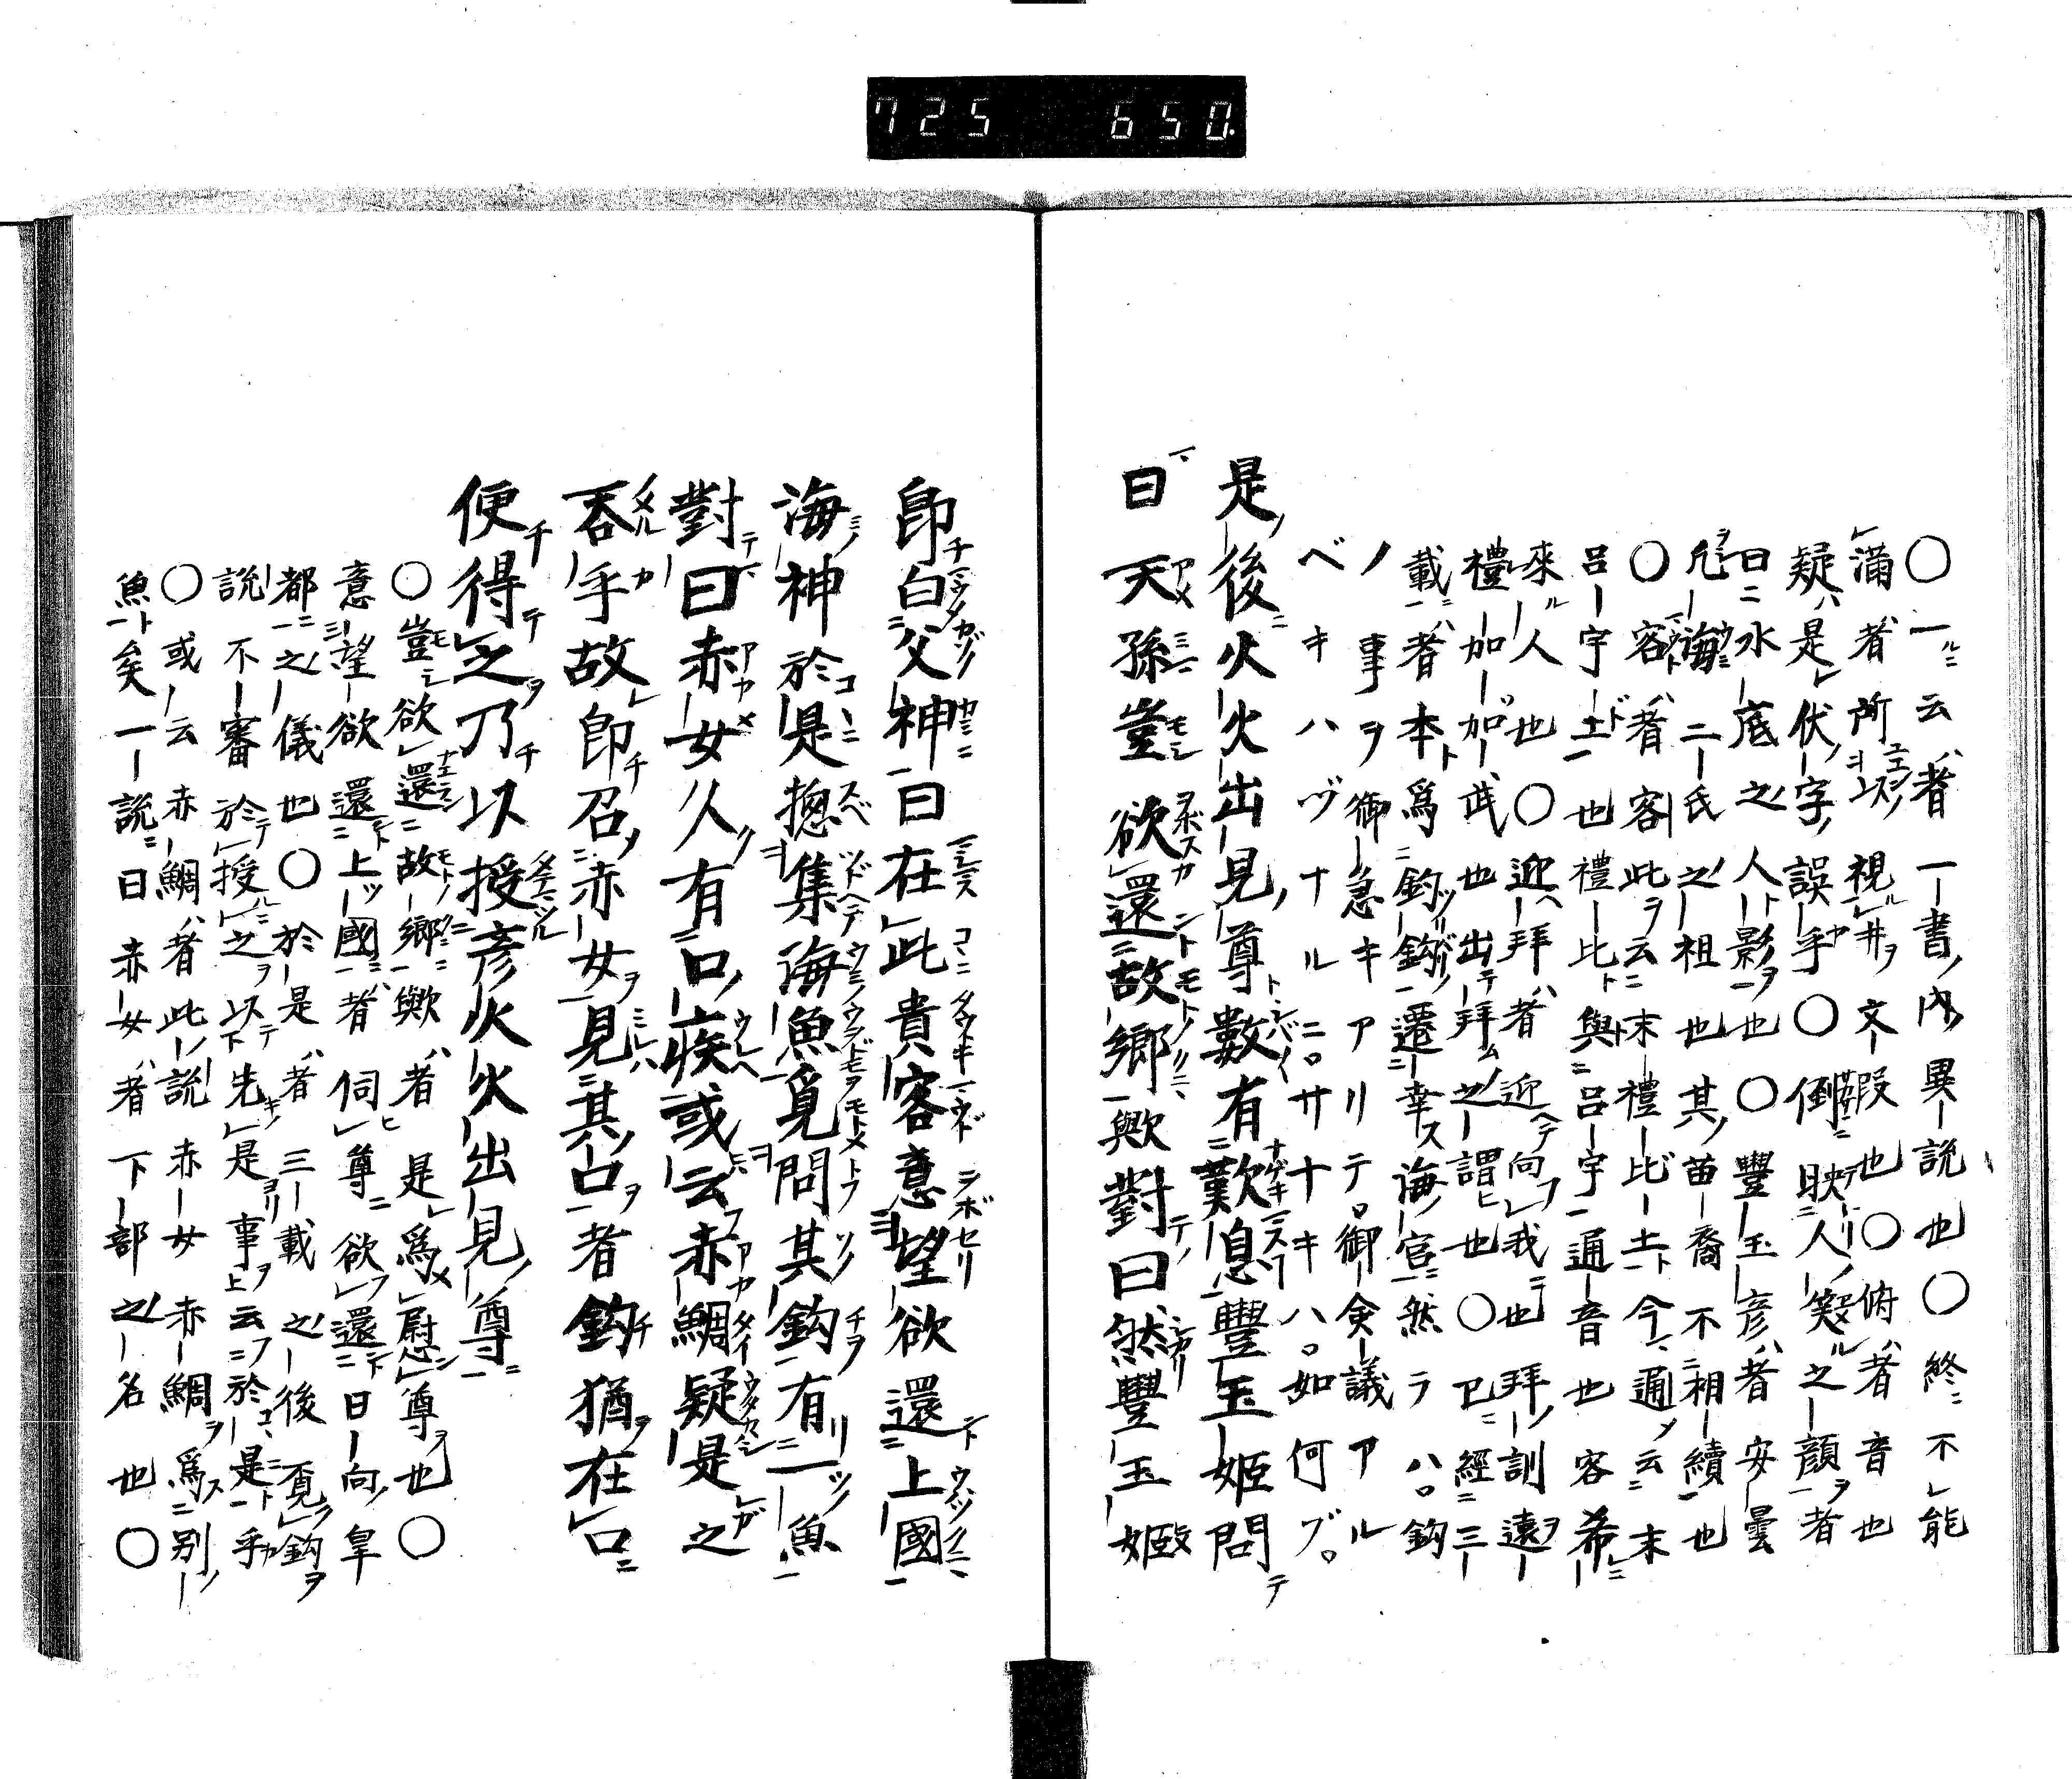 725 650.
○一云者一書内異說也○終不能
滿者所以視井文叚也○俯者音也
疑是伏字誤乎○倒映人笑之顔者
曰水底之人影也○豐玉彦者安曇
凢海二氏之祖也其苗裔不相續也
○容者客此云末禮比土今通云末
呂宇土也禮比與呂宇通音也客希
來人也○迎拜者迎向我也拜訓遠
禮加加武也出拜之謂也○已經三
載者本爲釣鈎遷幸海宮然ラハ鈎
ノ事ヲ御急キアリテ御僉議アル
ベキハヅナルニサナキハ如何ブ
是後火火出見尊數有歎息豐玉姬問
曰天孫豈欲還故鄕歟對曰然豐玉姬
卽白父神曰在此貴客意望欲還上國
海神於是摠集海魚覓問其鈎有一魚
對曰赤女久有口疾或云赤鯛疑是之
吞乎故卽召赤女見其口者鈎猶在口
便得之乃以授彦火火出見尊
○豈欲還故鄕歟者是爲慰尊也○
意望欲還上國者伺尊欲還日向皇
都之儀也○於是者三載之後覓鈎
說不審於授之以先是事云於是乎
○或云赤鯛者此說赤女赤鯛爲別
魚矣一說曰赤女者下部之名也○